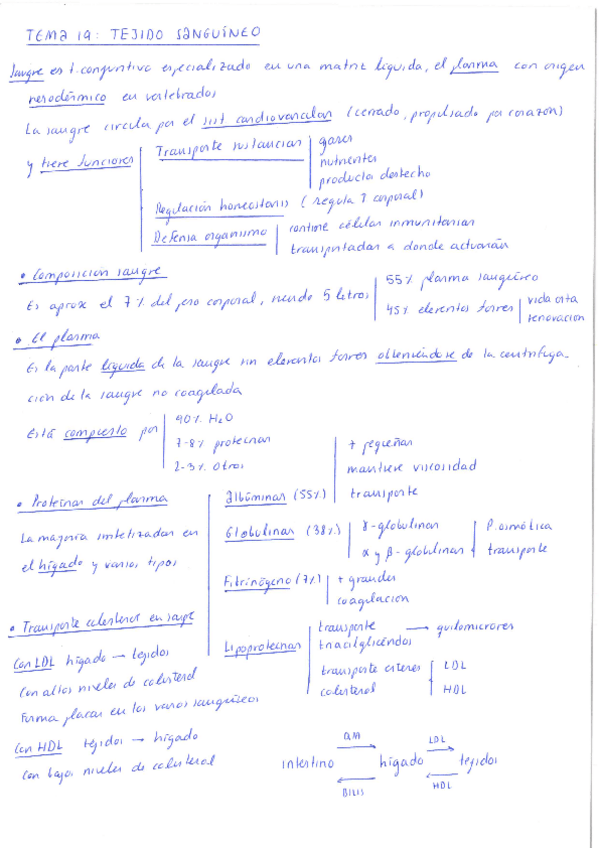 TEMA 19: TEJIDO SANGUÍNEO
Sangre es t. conjuntivo especializado en una matriz líquida, el plasma con origen
mesodérmico en vertebrados
La sangre circula por el sist cardiovascular (cerrado, propulsado por corazón)
y tiene funciones
Transporte sustancias
gases
nutrientes
producto desecho
Regulación homeostasis (regula T corporal)
Defensa organismo
contiene células inmunitarias
transportadas a donde actuarán
• Composición sangre
Es aprox el 7% del peso corporal, siendo 5 litros
55% plasma sanguíneo
45% elementos formes
vida corta
renovación
• El plasma
Es la parte líquida de la sangre sin elementos formes obteniéndose de la centrifuga-
ción de la sangre no coagulada
Está compuesto por
90% H2O
7-8% proteínas
2-3% otros
• Proteínas del plasma
La mayoría sintetizadas en
el hígado y varios tipos
Albúminas (55%)
+ pequeñas
mantiene viscosidad
transporte
Globulinas (38%)
γ-globulinas
α y β-globulinas
P. osmótica
transporte
Fibrinógeno (7%)
+ grandes
coagulación
Lipoproteínas
transporte → quilomicrones
triacilglicéridos
transporte esteres
colesterol
LDL
HDL
• Transporte colesterol en sangre
Con LDL hígado → tejidos
Con altos niveles de colesterol
forma placas en los vasos sanguíneos
Con HDL tejidos → hígado
Con bajos niveles de colesterol
QM LDL
intestino hígado tejidos
BILIS HDL